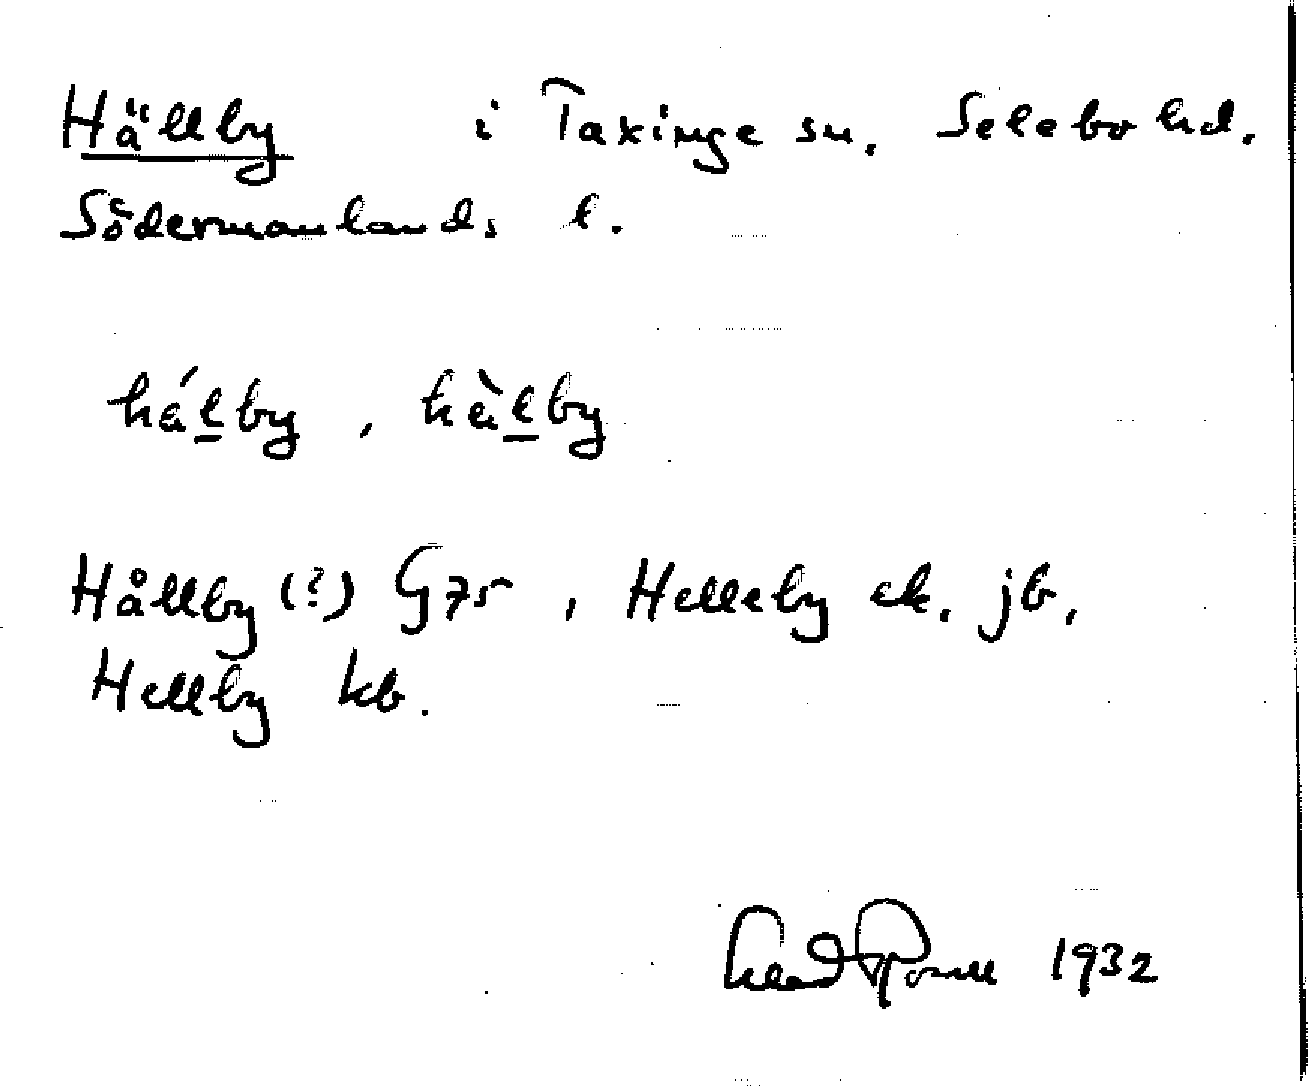 Hällby i Taxinge sn. Selebo hd.
Södermanlands l.
hálby, hàlby
Hållby (?) G75, Helleby ek. jb.
Hellby kb.
1932